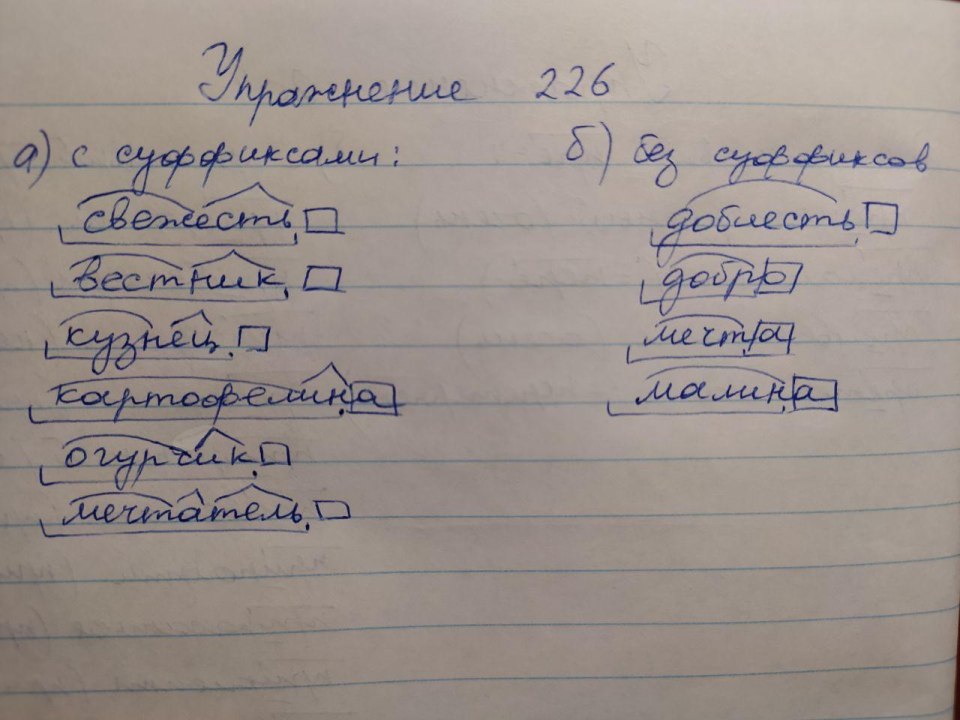 Упражнение 226
а) с суффиксами: б) без суффиксов
свежесть доблесть
вестник добро
кузнец мечта
картофелина малина
огурчик
мечтатель